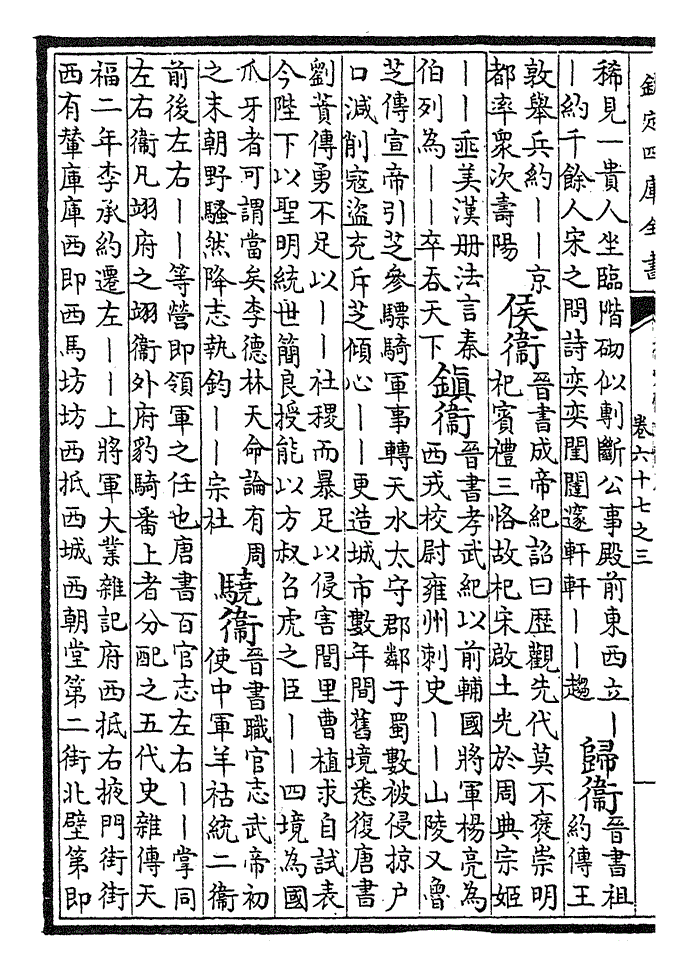 欽定四庫全書
卷六十七之三
稀見一貴人坐臨階砌似剸斷公事殿前東西立｜
｜約千餘人宋之問詩奕奕閨闥邃軒軒｜｜趨
歸衛
晉書祖
約傳王
敦舉兵約｜｜京
都率衆次壽陽
侯衛
晉書成帝紀詔曰歷觀先代莫不褒崇明
杞賓禮三恪故杞宋啟土光於周典宗姬
｜｜垂美漢册法言秦
伯列為｜｜卒吞天下
鎮衛
晉書孝武紀以前輔國將軍楊亮為
西戎校尉雍州刺史｜｜山陵又魯
芝傳宣帝引芝參驃騎軍事轉天水太守郡鄰于蜀數被侵掠户
口減削寇盜充斥芝傾心｜｜更造城市數年間舊境悉復唐書
劉蕡傳勇不足以｜｜社稷而暴足以侵害閭里曹植求自試表
今陛下以聖明統世簡良授能以方叔召虎之臣｜｜四境為國
爪牙者可謂當矣李德林天命論有周
之末朝野騷然降志執鈞｜｜宗社
驍衛
晉書職官志武帝初
使中軍羊祜統二衛
前後左右｜｜等營即領軍之任也唐書百官志左右｜｜掌同
左右衛凡翊府之翊衛外府豹騎番上者分配之五代史雜傳天
福二年李承約遷左｜｜上將軍大業雜記府西抵右掖門街街
西有輦庫庫西即西馬坊坊西抵西城西朝堂第二街北壁第即